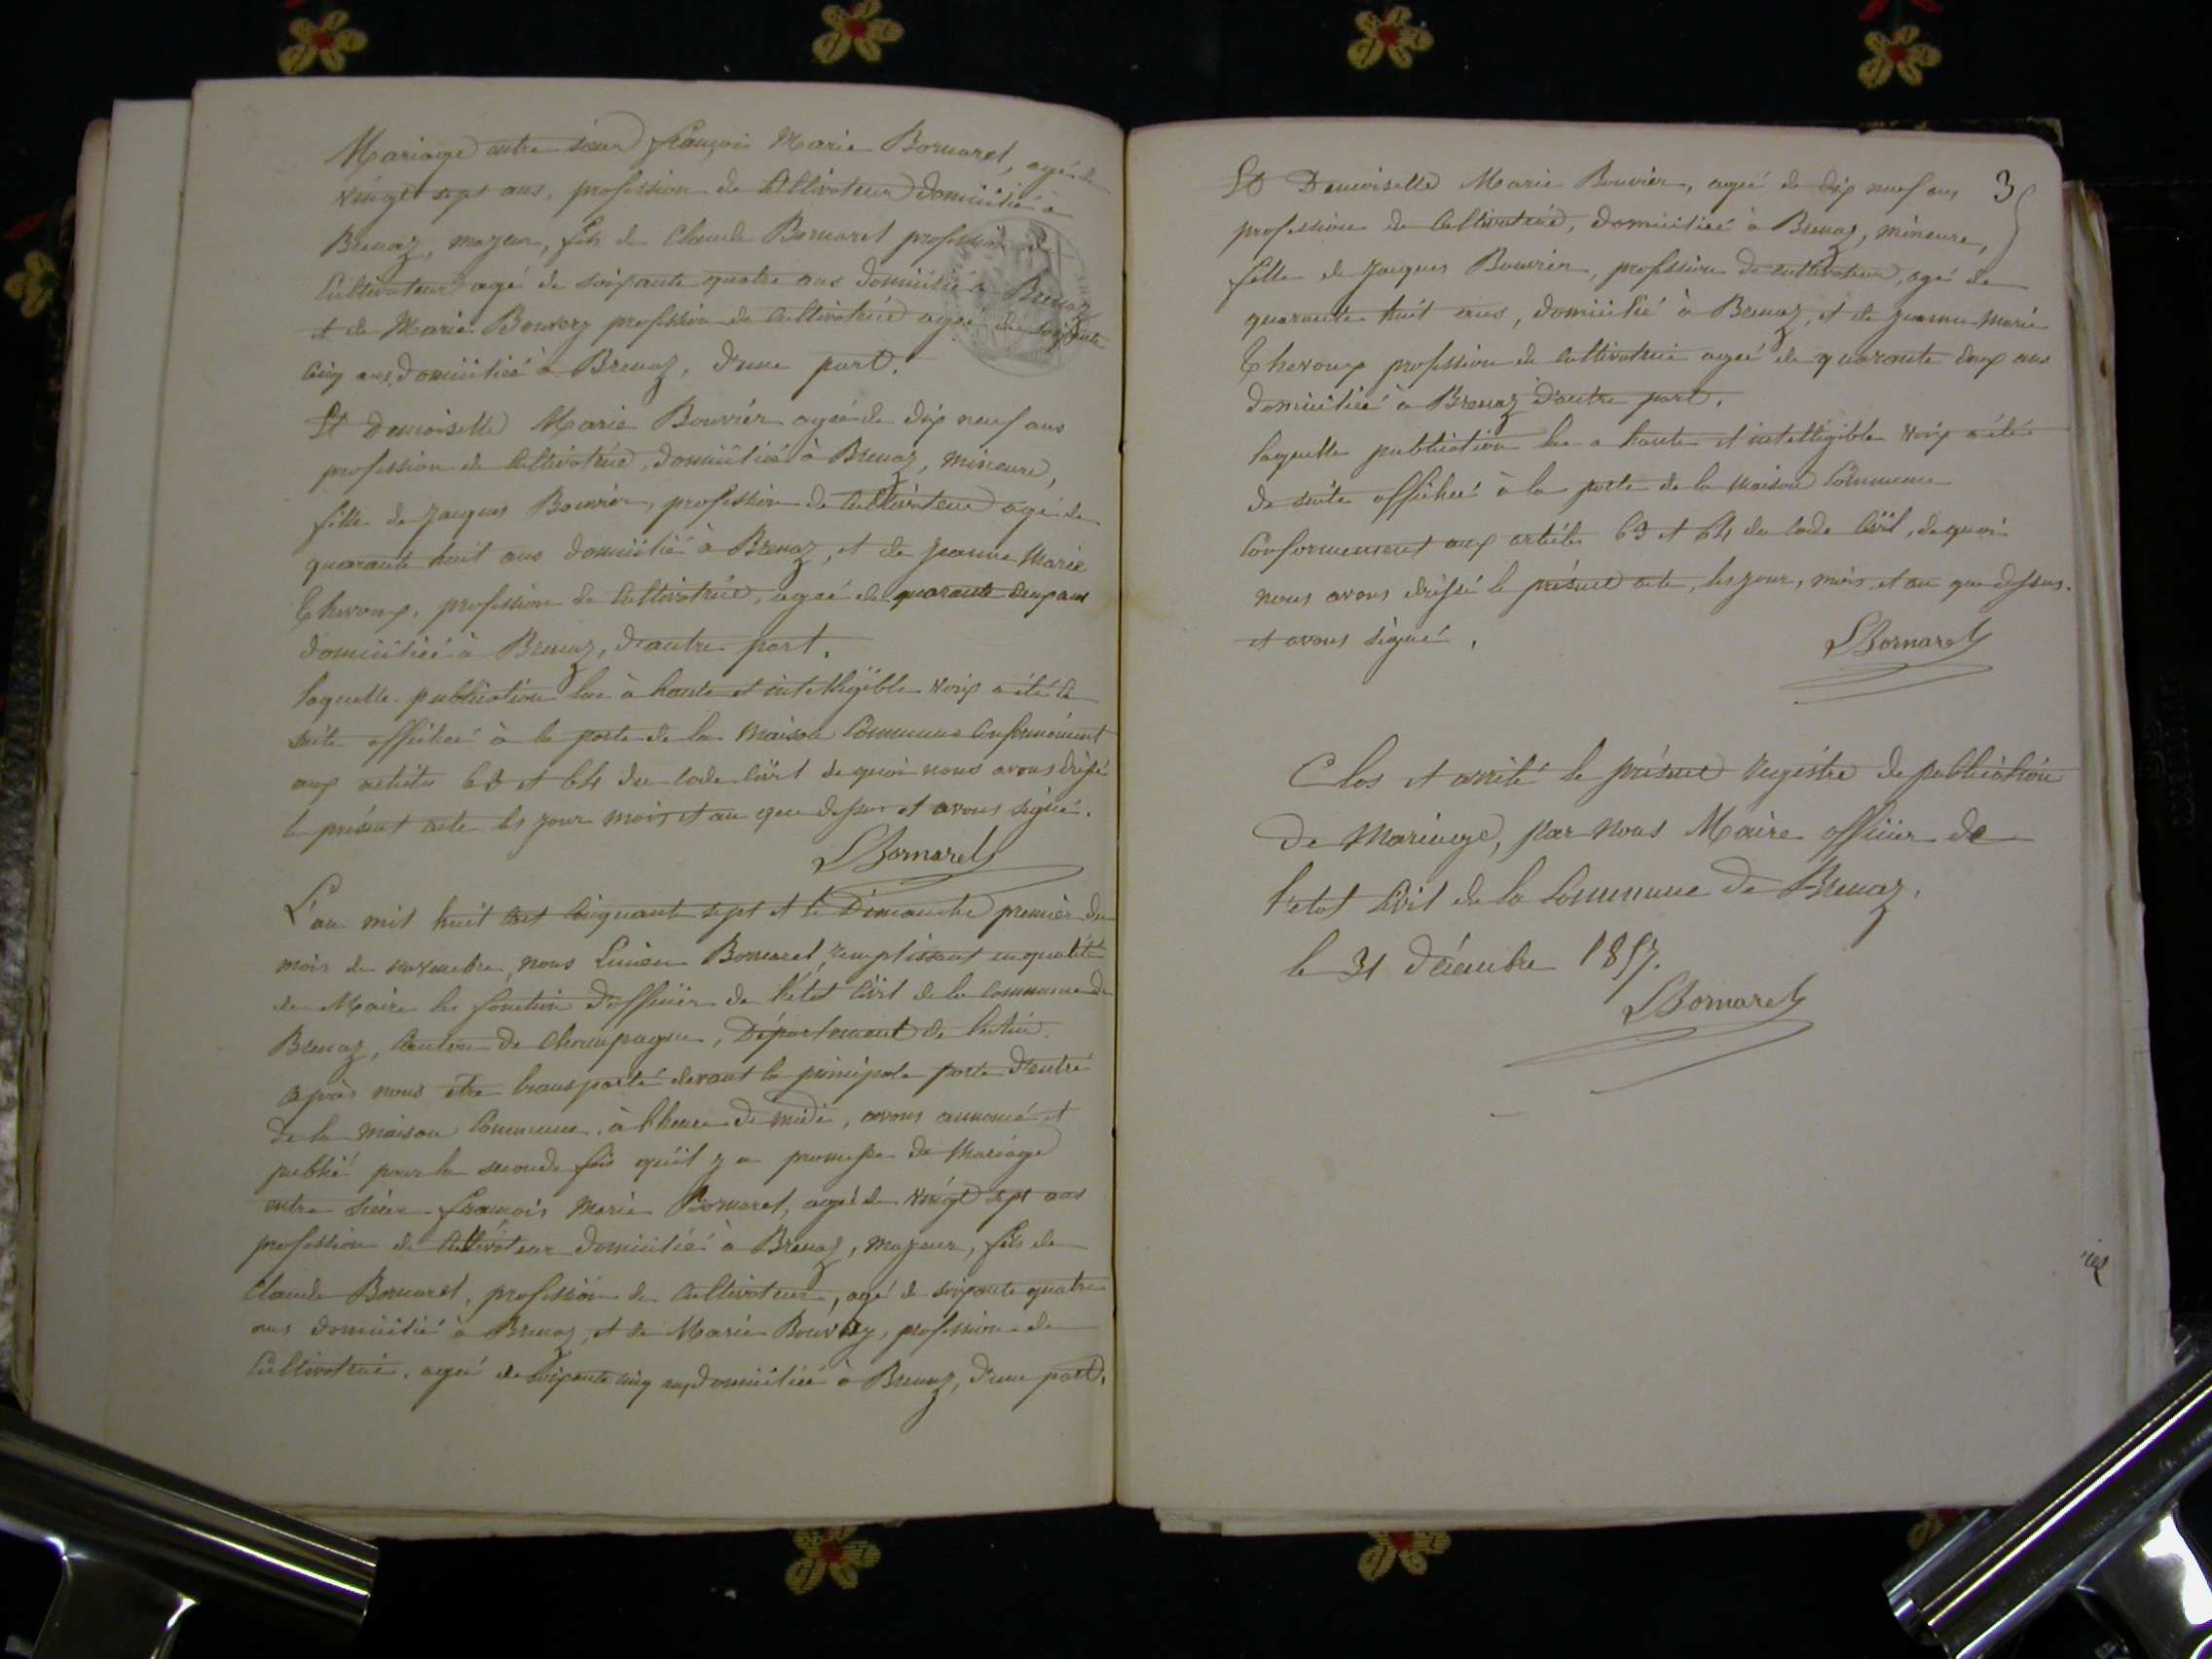 Mariage entre sieur françois Marie Bornarel, agé de
vingt sept ans, profession de Cultivateur domicilié à
Brenaz, majeur, fils de Claude Bornarel profession de
Cultivateur agé de soixante quatre ans domicilié à Brenaz
et de Marie Bouvery profession de Cultivatrice agée de soixante
cinq ans, domiciliée à Brenaz, d'une part.
Et Demoiselle Marie Bouvier agée de dix neuf ans
profession de Cultivatrice, domiciliée à Brenaz, mineure,
fille de Jacques Bouvier, profession de Cultivateur agé de
quarante huit ans domicilié à Brenaz, et de Jeanne Marie
Chevoux, profession de Cultivatrice, agée de quarante deux ans
domiciliée à Brenaz, d'autre part.
laquelle publication lue à haute et intelligible voix a été de
suite affichée à la porte de la Maison Commune Conformément
aux articles 63 et 64 du Code Civil de quoi nous avons dréssé
le présent acte les jour mois et an que dessus et avons signé.
LBornarel
L'an mil huit cent cinquante sept et le Dimanche premier du
mois de novembre, nous Lucien Bornarel, remplissant en qualité
de Maire les fonction d'officier de l'état Civil de la Commune de
Brenaz, Canton de Champagne, Département de l'Ain.
après nous être transporté devant la principale porte d'entré
de la maison Commune, à l'heure de midi, avons annoncé et
publié pour la seconde fois qu'il y a promesse de Mariage
entre sieur françois Marie Bornarel, agé de vingt sept ans
profession de Cultivateur domicilié à Brenaz, majeur, fils de
Claude Bornarel, profession de Cultivateur, agé de soixante quatre
ans domicilié à Brenaz, et de Marie Bouvery, profession de
Cultivatrice, agée de soixante cinq ans, domiciliée à Brenaz, d'une part.
3
Et Demoiselle Marie Bouvier, agée de dix neuf ans,
profession de Cultivatrice, domiciliée à Brenaz, mineure,
fille de Jacques Bouvier, profession de cultivateur, agé de
quarante huit ans, domicilié à Brenaz, et de Jeanne Marie
Chevoux profession de Cultivatrice agée de quarante deux ans
domiciliée à Brenaz d'autre part.
laquelle publication lue a haute et intelligible voix a été
de suite affichée à la porte de la Maison Commune
Conformement aux articles 63 et 64 du Code Civil, de quoi
nous avons dréssé le présent acte, les jour, mois et an que dessus.
et avons signé,
LBornarel
Clos et arrêté le présent régistre de publication
de Mariage, par nous Maire officier de
l'état Civil de la Commune de Brenaz.
le 31 décembre 1857.
LBornarel